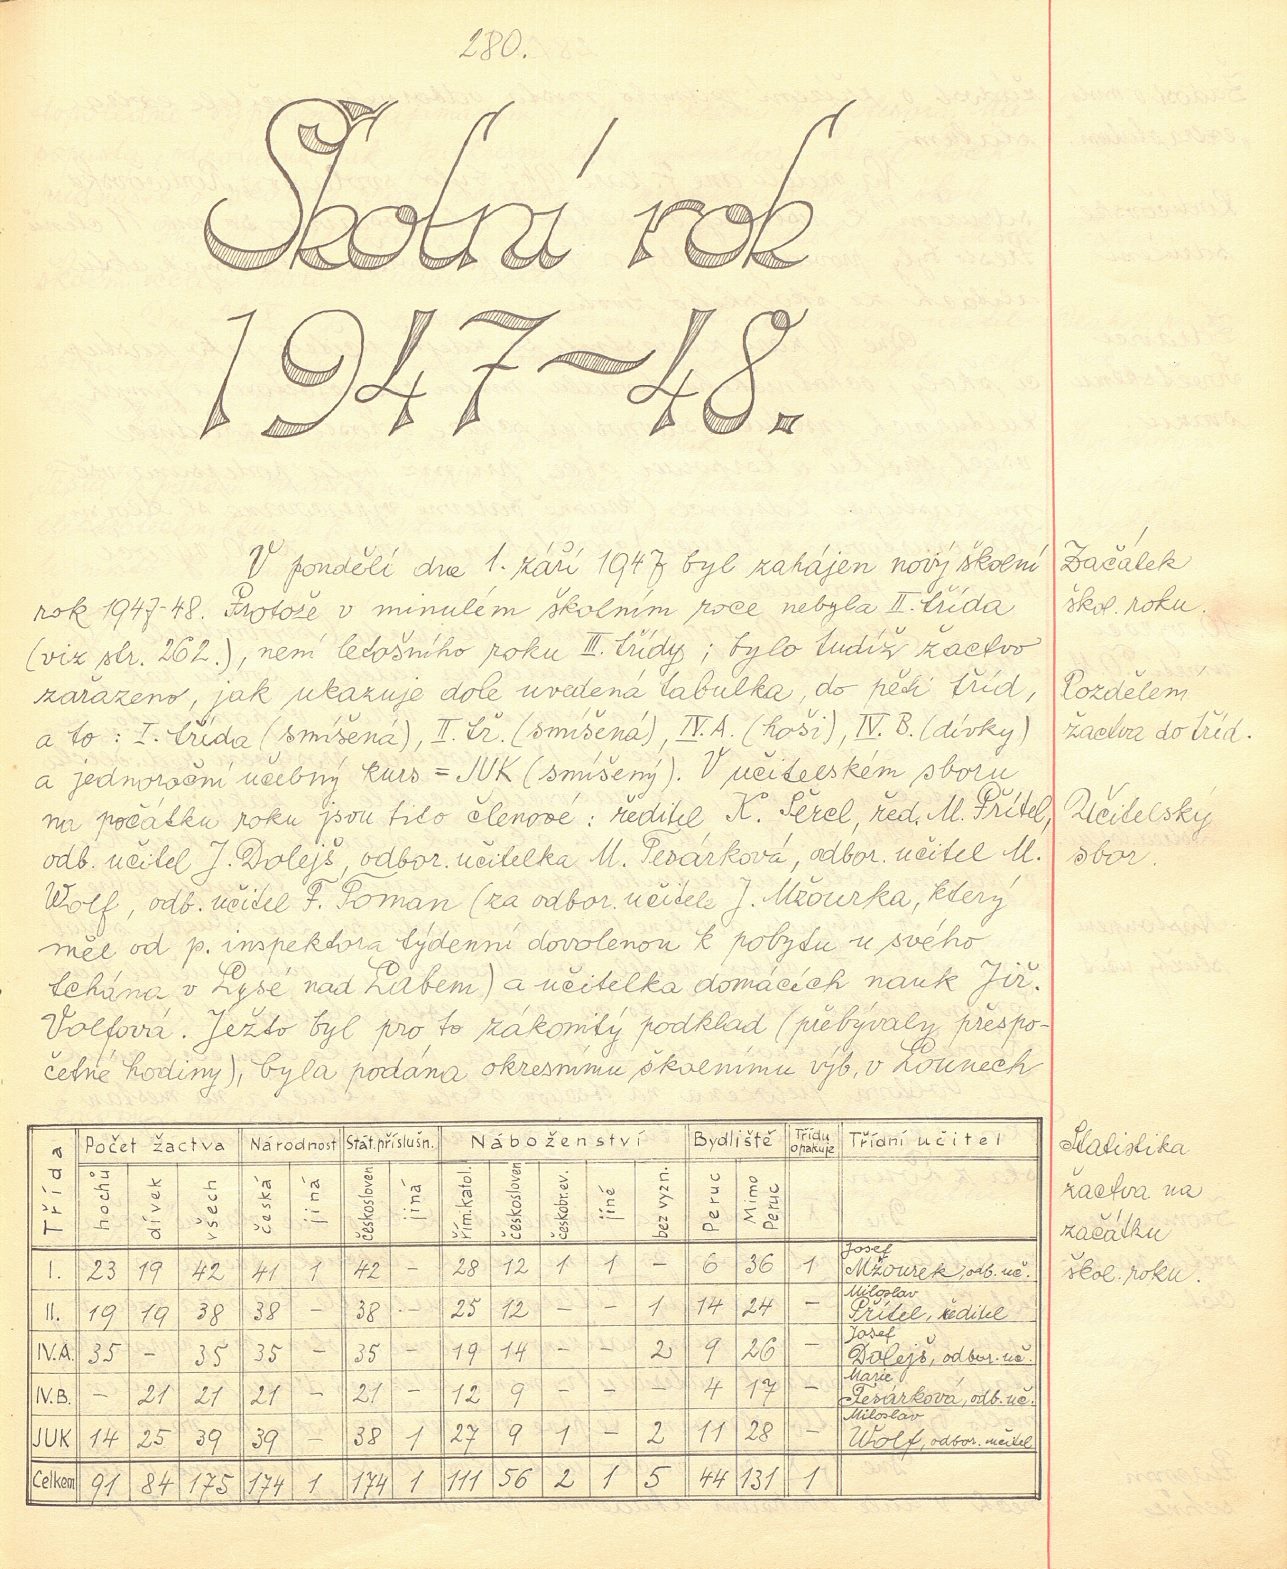 280.
Školní rok
1947-48.
V pondělí dne 1. září 1947 byl zahájen nový školní
rok 1947-48. Protože v minulém školním roce nebyla II. třída
(viz str. 262.), není letošního roku III. třídy; bylo tudíž žactvo
zařazeno, jak ukazuje dole uvedená tabulka, do pěti tříd,
a to: I. třída (smíšená), II. tř. (smíšená), IV. A. (hoši), IV. B. (dívky)
a jednoroční učebný kurs = JUK (smíšený). V učitelském sboru
na počátku roku jsou tito členové: ředitel K. Šércl, řed. M. Přítel,
odb. učitel J. Dolejš, odbor. učitelka M. Tesárková, odbor. učitel M.
Wolf, odb. učitel F. Toman (za odbor. učitele J. Mžourka, který
měl od p. inspektora týdenní dovolenou k pobytu u svého
tchána v Lysé nad Labem) a učitelka domácích nauk Jiř.
Volfová. Ježto byl pro to zákonitý podklad (přebývaly přespo-
četné hodiny), byla podána okresnímu školnímu výb. v Lounech
Začátek
škol. roku.
Rozdělení
žactva do tříd.
Učitelský
sbor.
Statistika
žactva na
začátku
škol. roku.
Třída Počet žactva Národnost Stát. příslušn. Náboženství Bydliště Třídu opakuje Třídní učitel
hochů dívek všech česká jiná českosloven jiná řím. katol. českosloven českobr. ev. jiné bez vyzn. Peruc Mimo Peruc
I. 23 19 42 41 1 42 - 28 12 1 1 - 6 36 1 Josef Mžourek, odb. uč.
II. 19 19 38 38 - 38 - 25 12 - - 1 14 24 - Miloslav Přítel, ředitel
IV.A. 35 - 35 35 - 35 - 19 14 - - 2 9 26 - Josef Dolejš, odbor. uč.
IV.B. - 21 21 21 - 21 - 12 9 - - - 4 17 - Marie Tesárková, odb. uč.
JUK 14 25 39 39 - 38 1 27 9 1 - 2 11 28 - Miloslav Wolf, odbor. učitel
Celkem 91 84 175 174 1 174 1 111 56 2 1 5 44 131 1